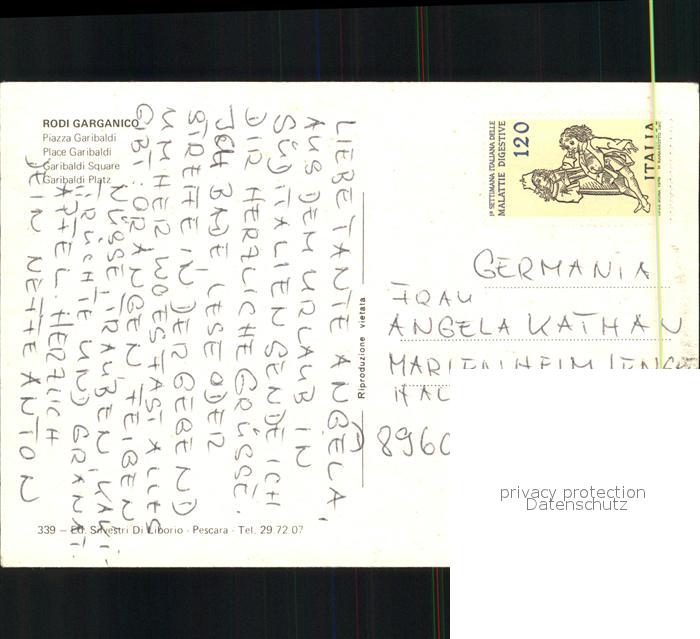 RODI GARGANICO
Piazza Garibaldi
Place Garibaldi
Garibaldi Square
Garibaldi Platz
LIEBE TANTE ANGELA,
AUS DEM URLAUB IN
SÜDITALIEN SENDE ICH
DIR HERZLICHE GRÜSSE.
ICH BADE, LESE ODER
STREIFE IN DER GEGEND
UMHER, WO ES FAST ALLES
GIBT: ORANGEN, FEIGEN
NÜSSE, TRAUBEN, KAKI-
FRÜCHTE UND GRANAT-
ÄPFEL. HERZLICH
DEIN NEFFE ANTON
Riproduzione vietata
1ª SETTIMANA ITALIANA DELLE
MALATTIE DIGESTIVE
120
ITALIA
GERMANIA
FRAU
ANGELA KATHAN
MARIENHEIM
8960
339 – Ed. Silvestri Di Liborio - Pescara - Tel. 29 72 07
privacy protection
Datenschutz